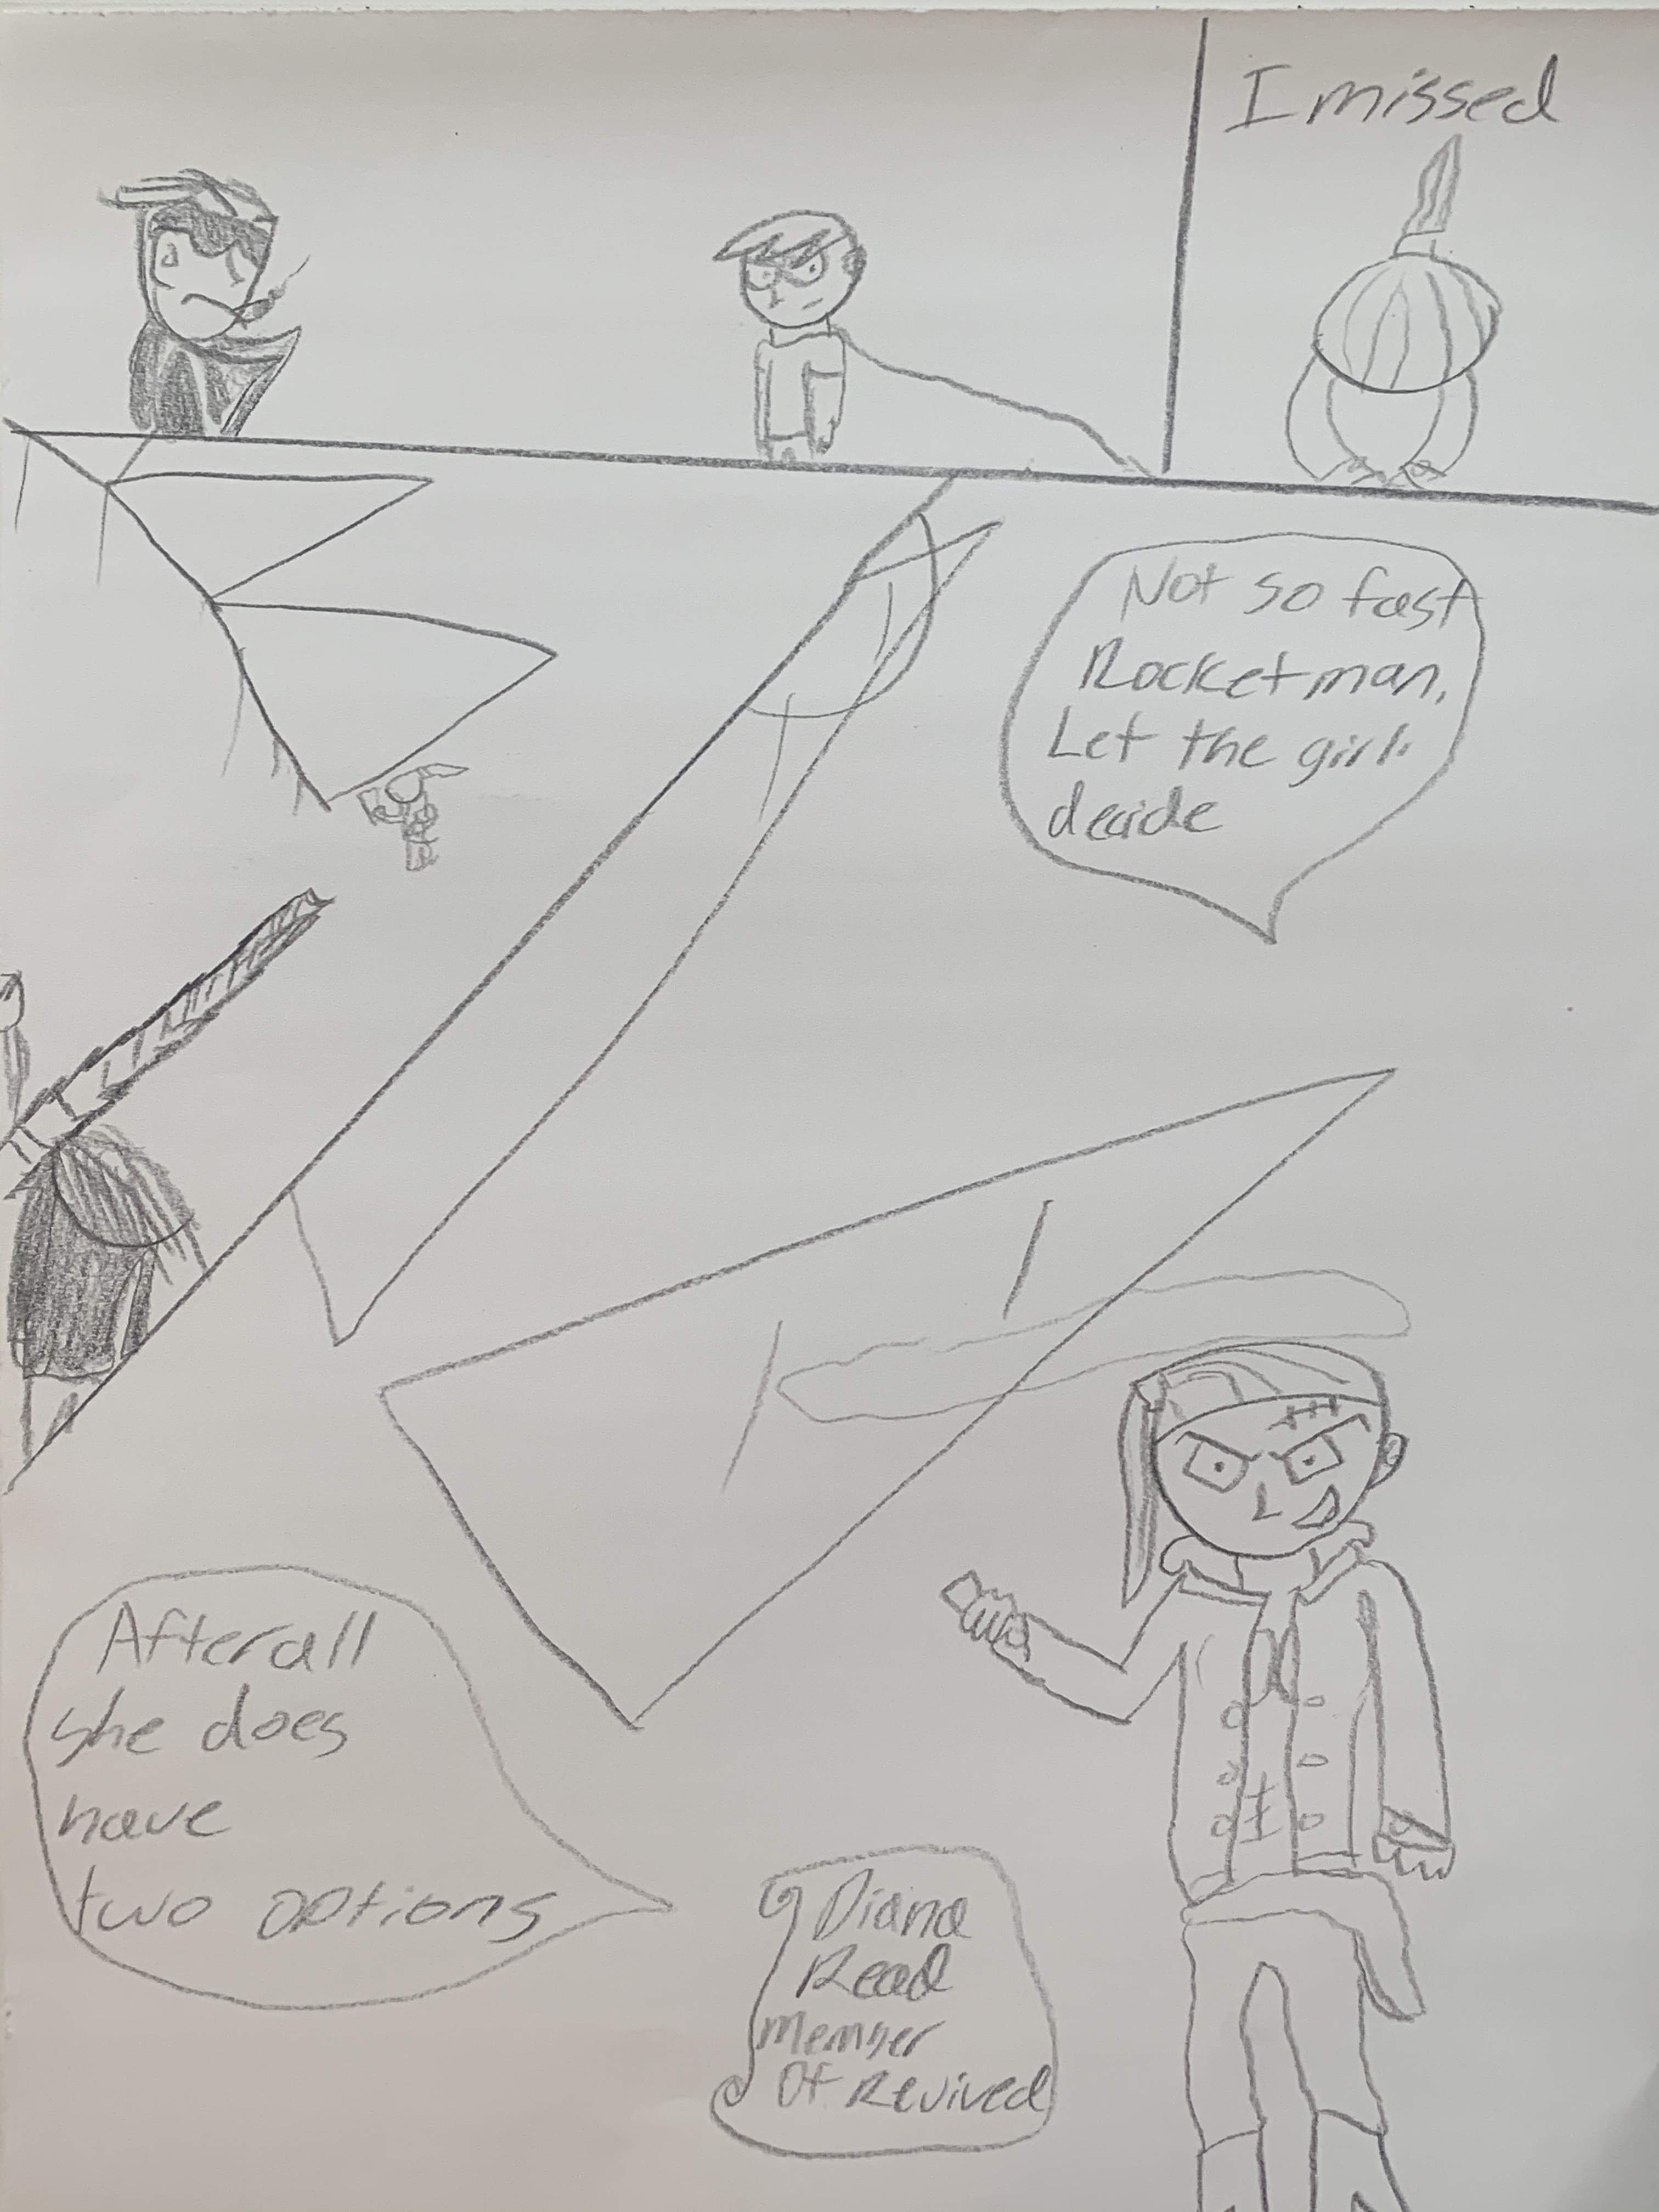 I missed
Not so fast
Rocketman.
Let the girl
decide
After all
she does
have
two options
Diana
Read
Member
Of Revived